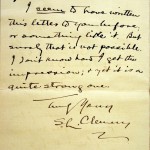 I seem to have written
this letter to you before,
or something like it. But
surely that is not possible.
I don't know how I got the
impression; & yet it is a
quite strong one.
Truly Yours
S L Clemens